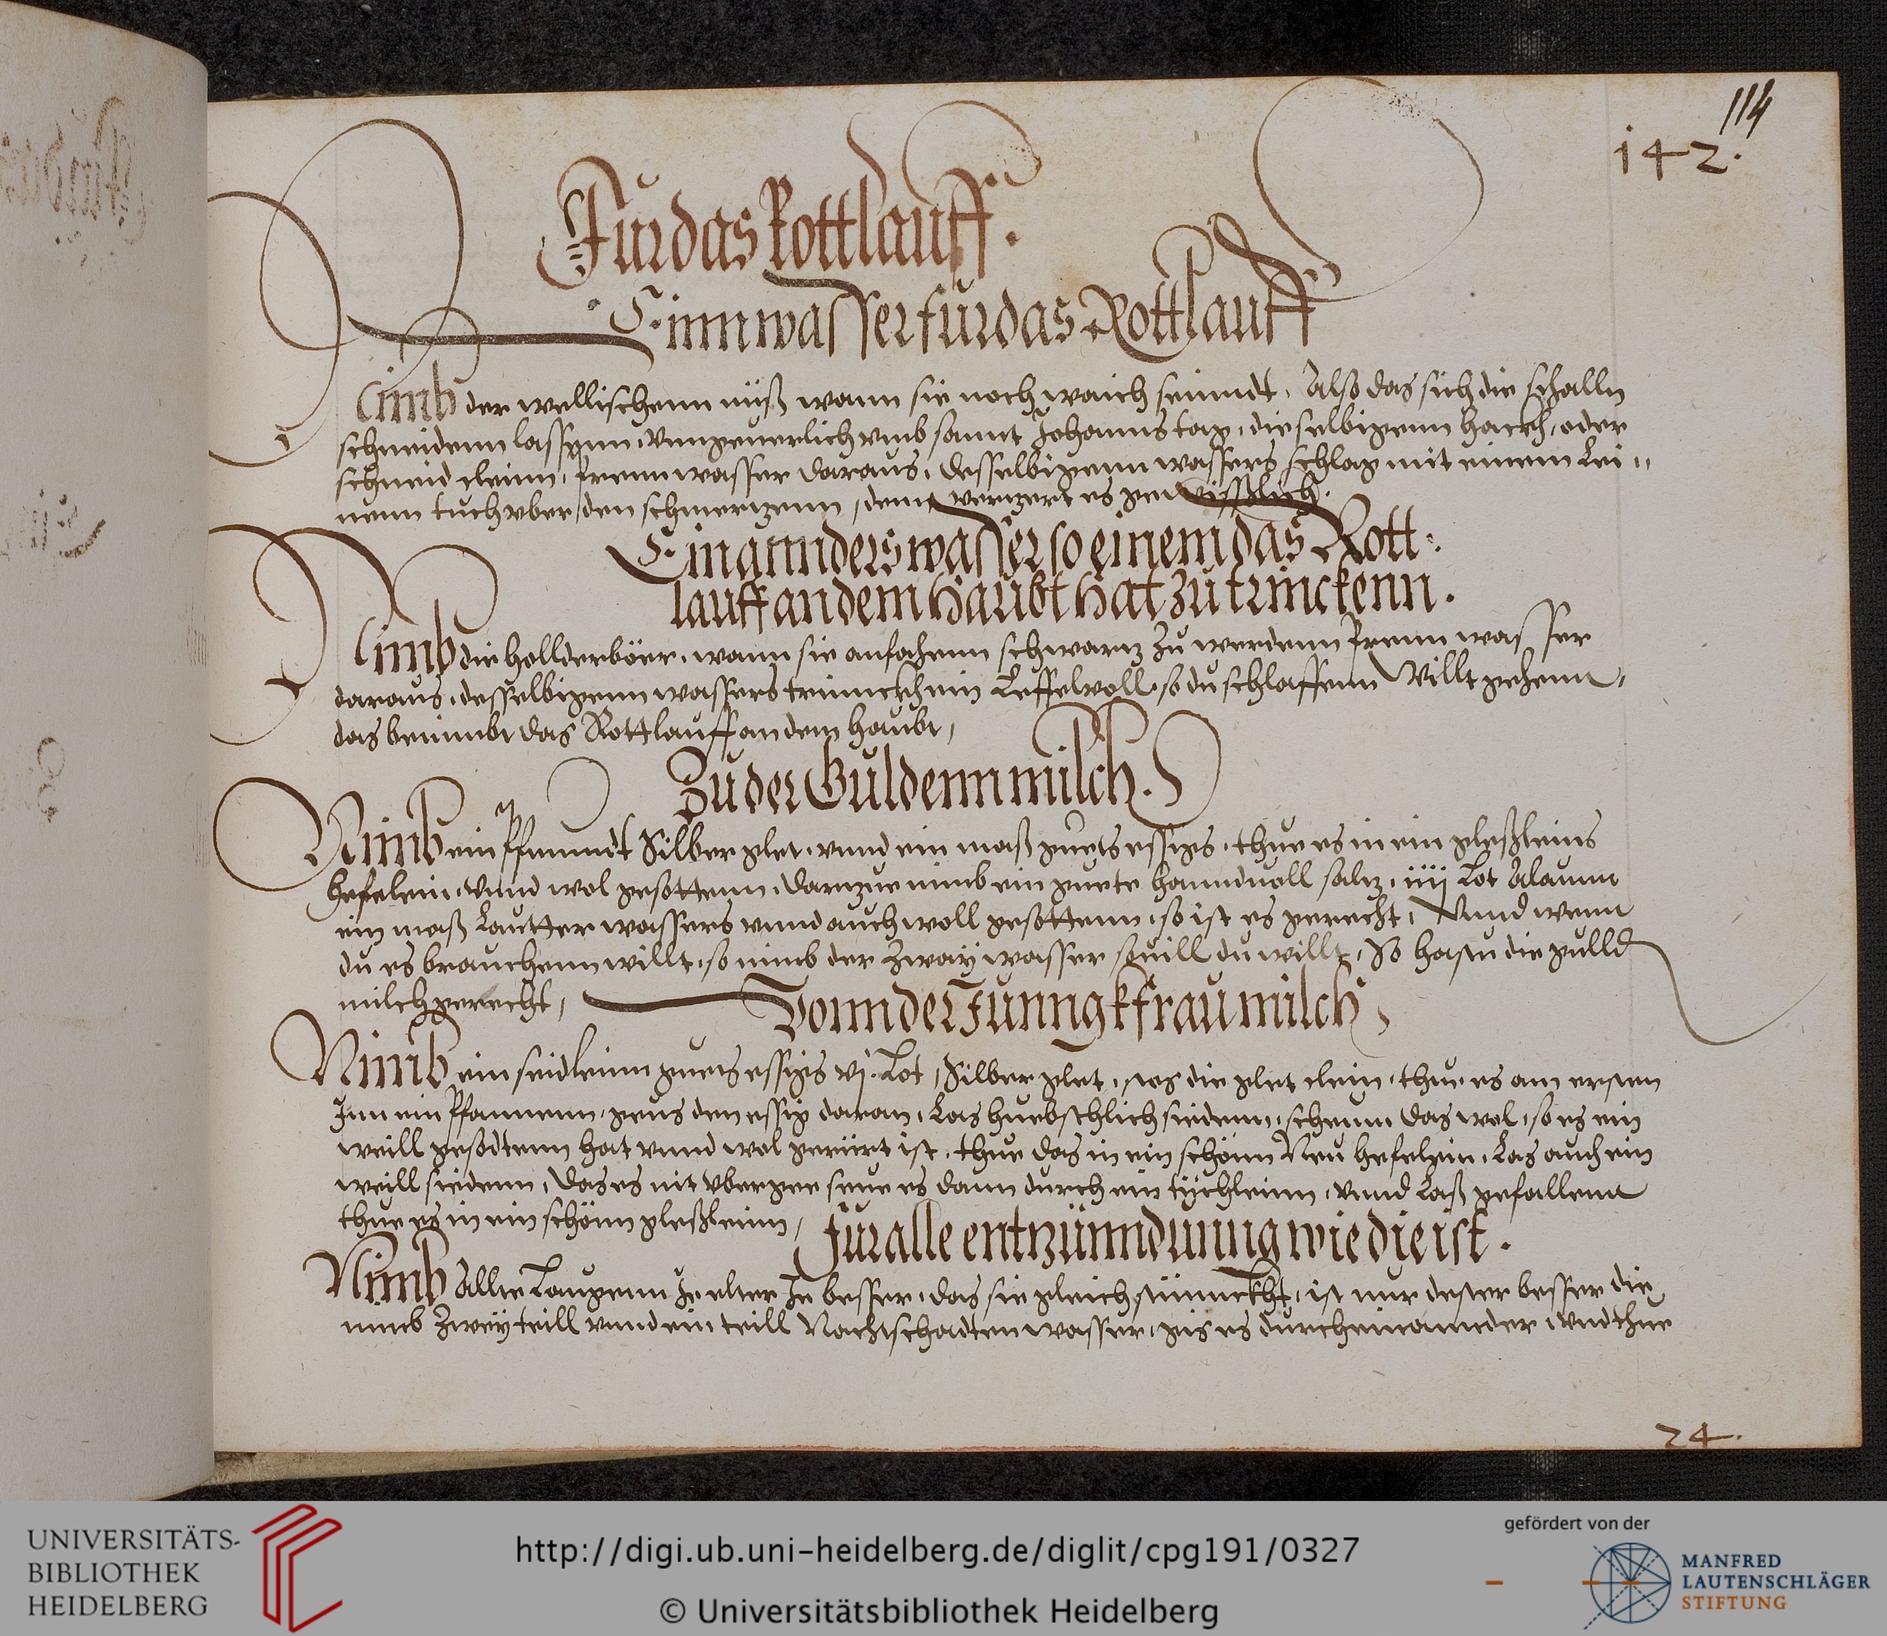 114
142.
Fur das Rottlauff.
Einn wasser fur das Rottlauff
Nimb der wellischenn nüß wann sie noch waich seinndt. Also das sich die schalln
schneidenn lassenn, vnngeuerlich vmb sannt Johanns tag, die selbigenn hackh, oder
schneid clein, prenn wasser daraus, desselbigenn wassers schlag mit einem Lei„
nenn tuch vber den schmertzenn, dem verzert es gewisslich.
Ein annders wasser so einem das Rott:
lauff an dem Haubt Hat zu trinckenn.
Nimb die Hollderbör, wann sie anfahenn schwartz zu werdenn prenn wasser
daraus, desselbigenn wassers trinnckh ein Leffelvoll, so du schlaffenn Willt gehenn,
das benimbt das Rottlauff an dem Haubt,
Zu der Guldenn milch.
Nimb ein Pfunndt Silberglet, vnnd ein maß guets essigs, thue es in ein gleßleins
hefelein, Vnnd wol gesottenn, Darnzue nimb ein guete hanndvoll saltz, iiij Lot Alaunn
ein maß Lautter wassers vnnd auch woll gesottenn, so ist es gerecht, Vnnd wenn
du es brauchenn willt, so nimb der Zway wasser souill du willt, So hastu die gulld
milch gerecht,
Vonn der Junngkfrau milch
Nimb ein seidleinn guets essigs vj. Lot, Silberglet, stos die glet clein, thue es am ersten
Inn ein Pfannenn, geus den essig daran, Las huebschlich siedenn, scheum das wol, so es ein
weill gesodtenn hat vnnd wol gerürt ist, thue das in ein schönn Neu hefelein, Las auch ein
weill siedenn, Das es nit vbergee seue es dann durch ein tüchleinn, vnnd Laß gefallenn
thue es in ein schönn gleßleinn,
Fur alle entzünndunng wie die ist.
Nimb Allte Laugenn Je elter Je besser, das sie gleich stinnckht, ist nur dester besser die
nimb Zwey teill vnnd ein teill Nachtschadten wasser, gis es durcheinannder, vnd thue
24.
UNIVERSITÄTS-
BIBLIOTHEK
HEIDELBERG
http://digi.ub.uni-heidelberg.de/diglit/cpg191/0327
© Universitätsbibliothek Heidelberg
gefördert von der
MANFRED
LAUTENSCHLÄGER
STIFTUNG